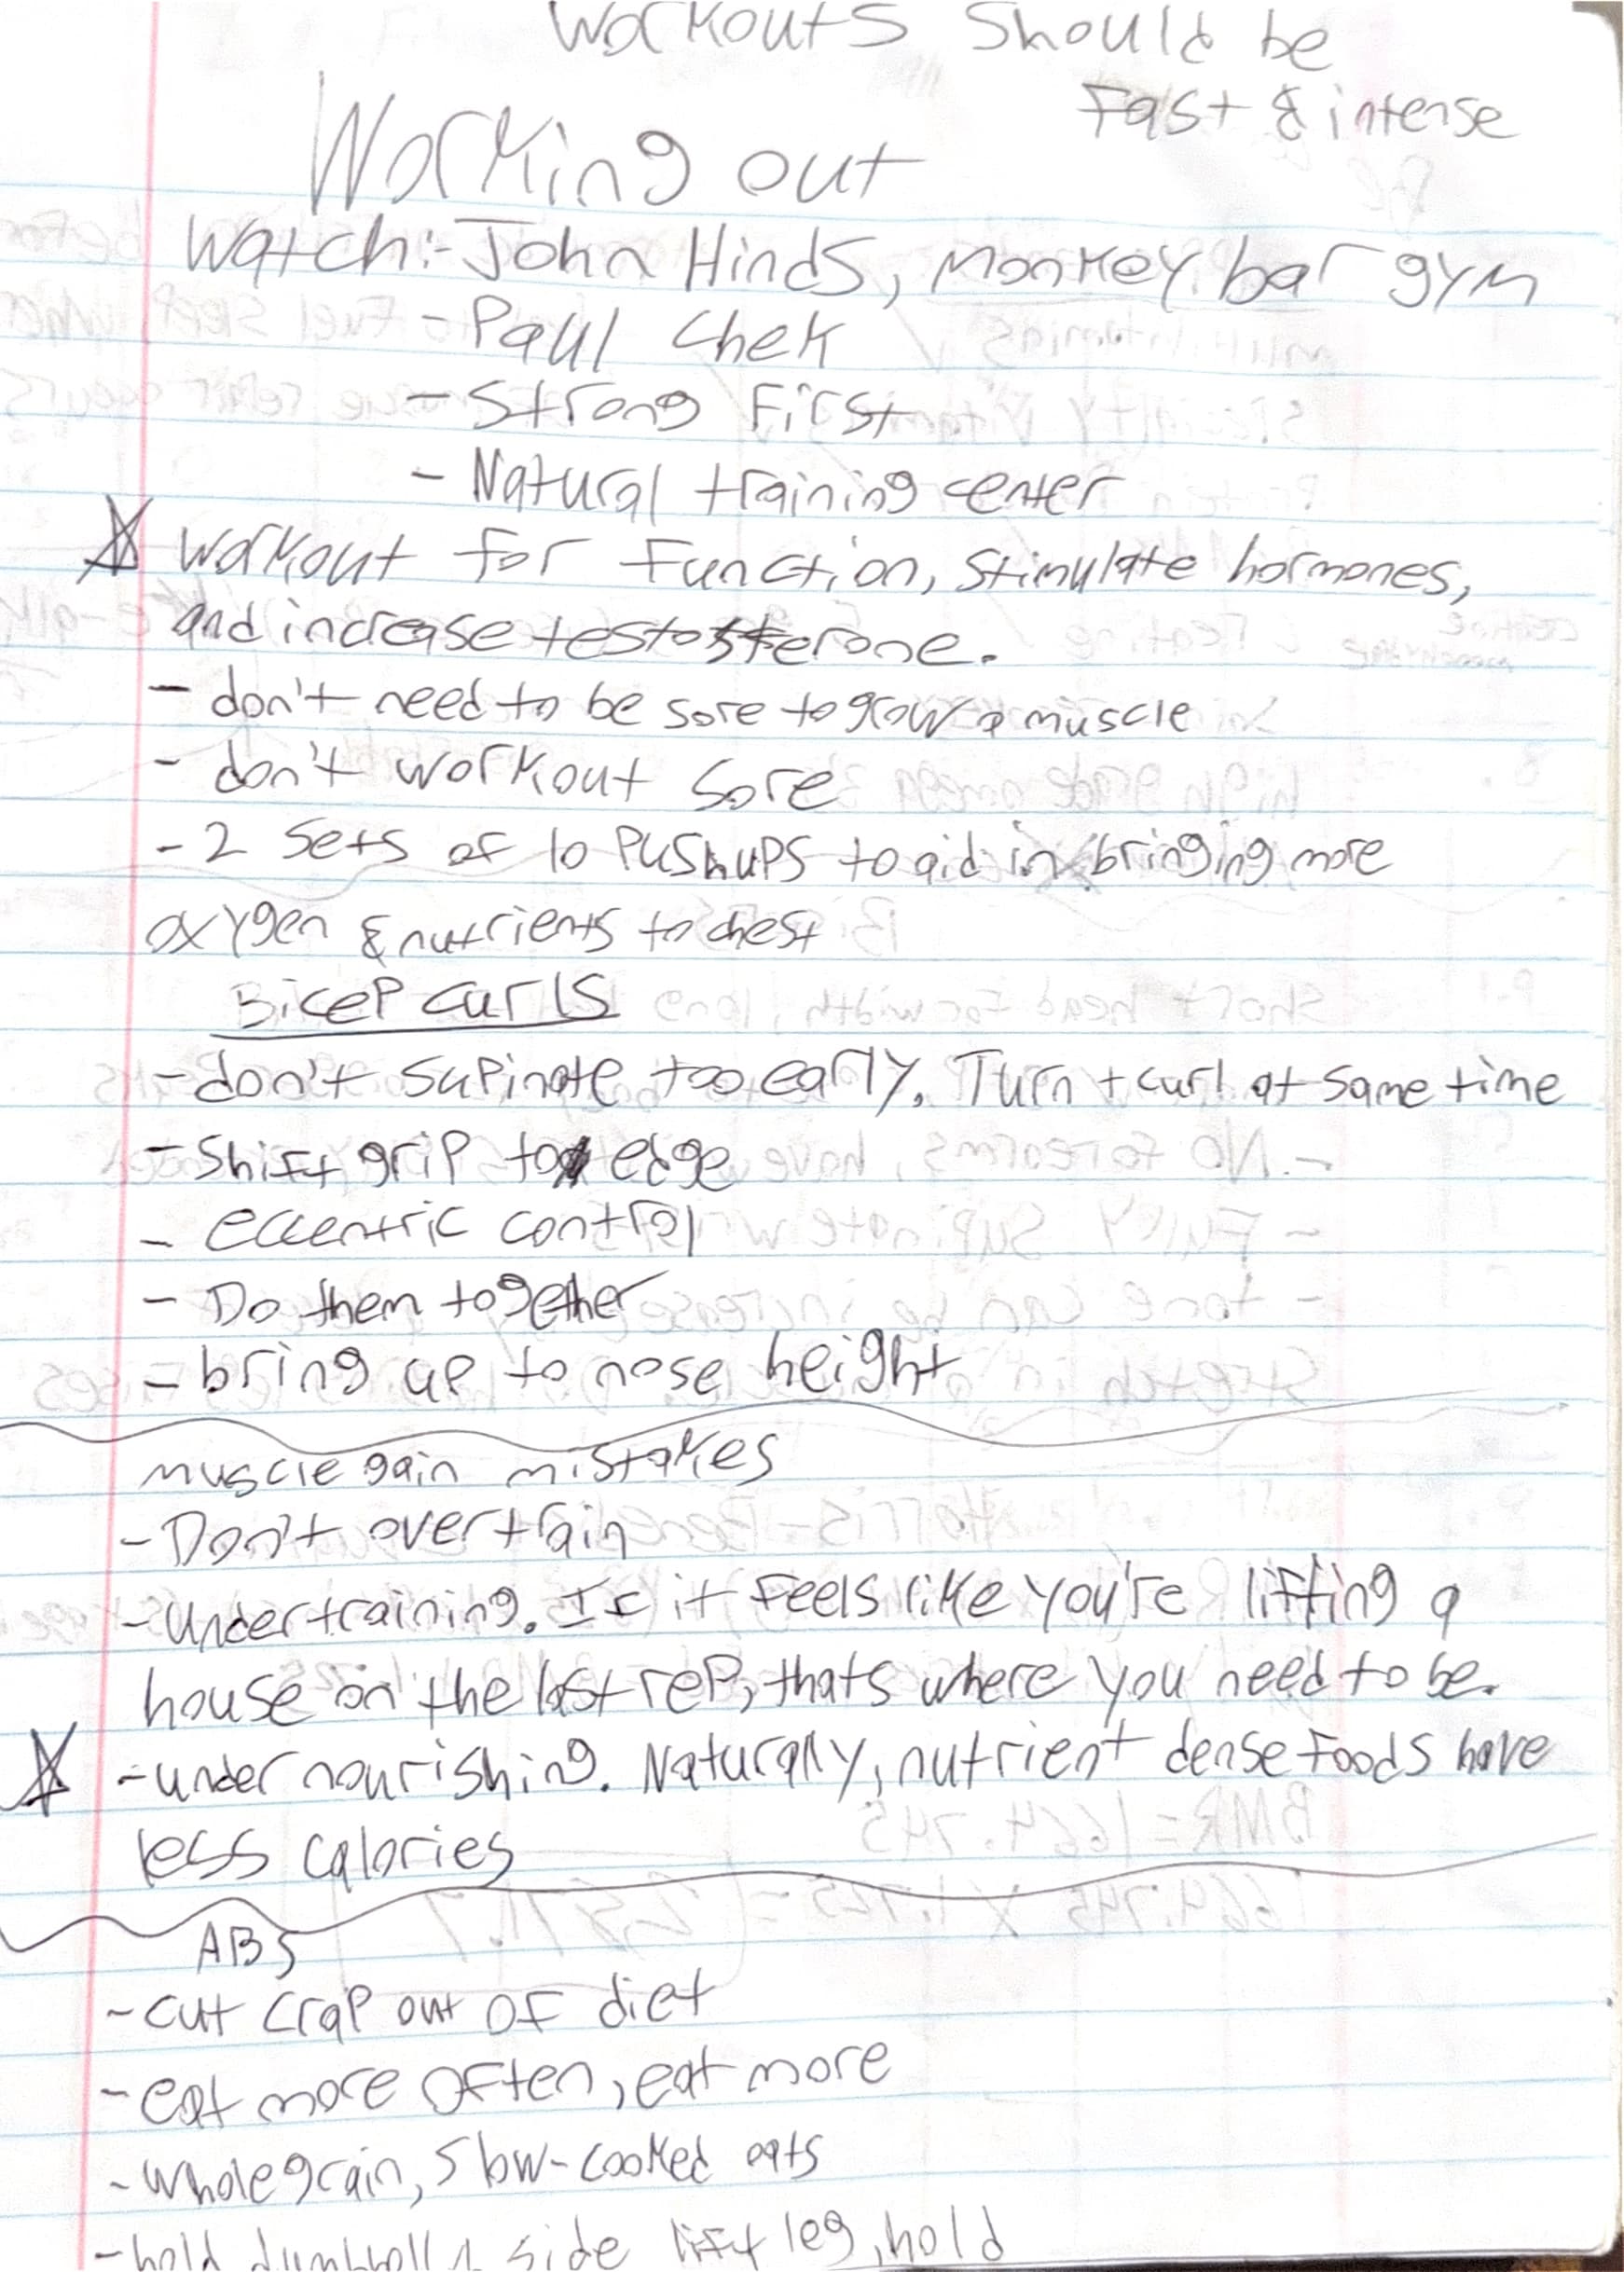 Workouts should be
Fast & intense
Working out
Watch:- John Hinds, monkey bar gym
- Paul Chek
- Strong First
- Natural training center
Workout for Function, stimulate hormones,
and increase testosterone.
- don't need to be sore to grow a muscle
- don't workout sore
- 2 sets of 10 Pushups to aid in bringing more
oxygen & nutrients to chest
Bicep curls
- don't supinate too early. Turn + curl at same time
- Shift grip to edge
- eccentric control
- Do them together
- bring up to nose height
muscle gain mistakes
- Don't overtrain
- Undertraining. If it feels like you're lifting a
house on the last rep, thats where you need to be.
- under nourishing. Naturally, nutrient dense foods have
less calories
ABS
- cut crap out of diet
- eat more often, eat more
- whole grain, slow-cooked oats
- hold dumbbell 1 side lift leg, hold